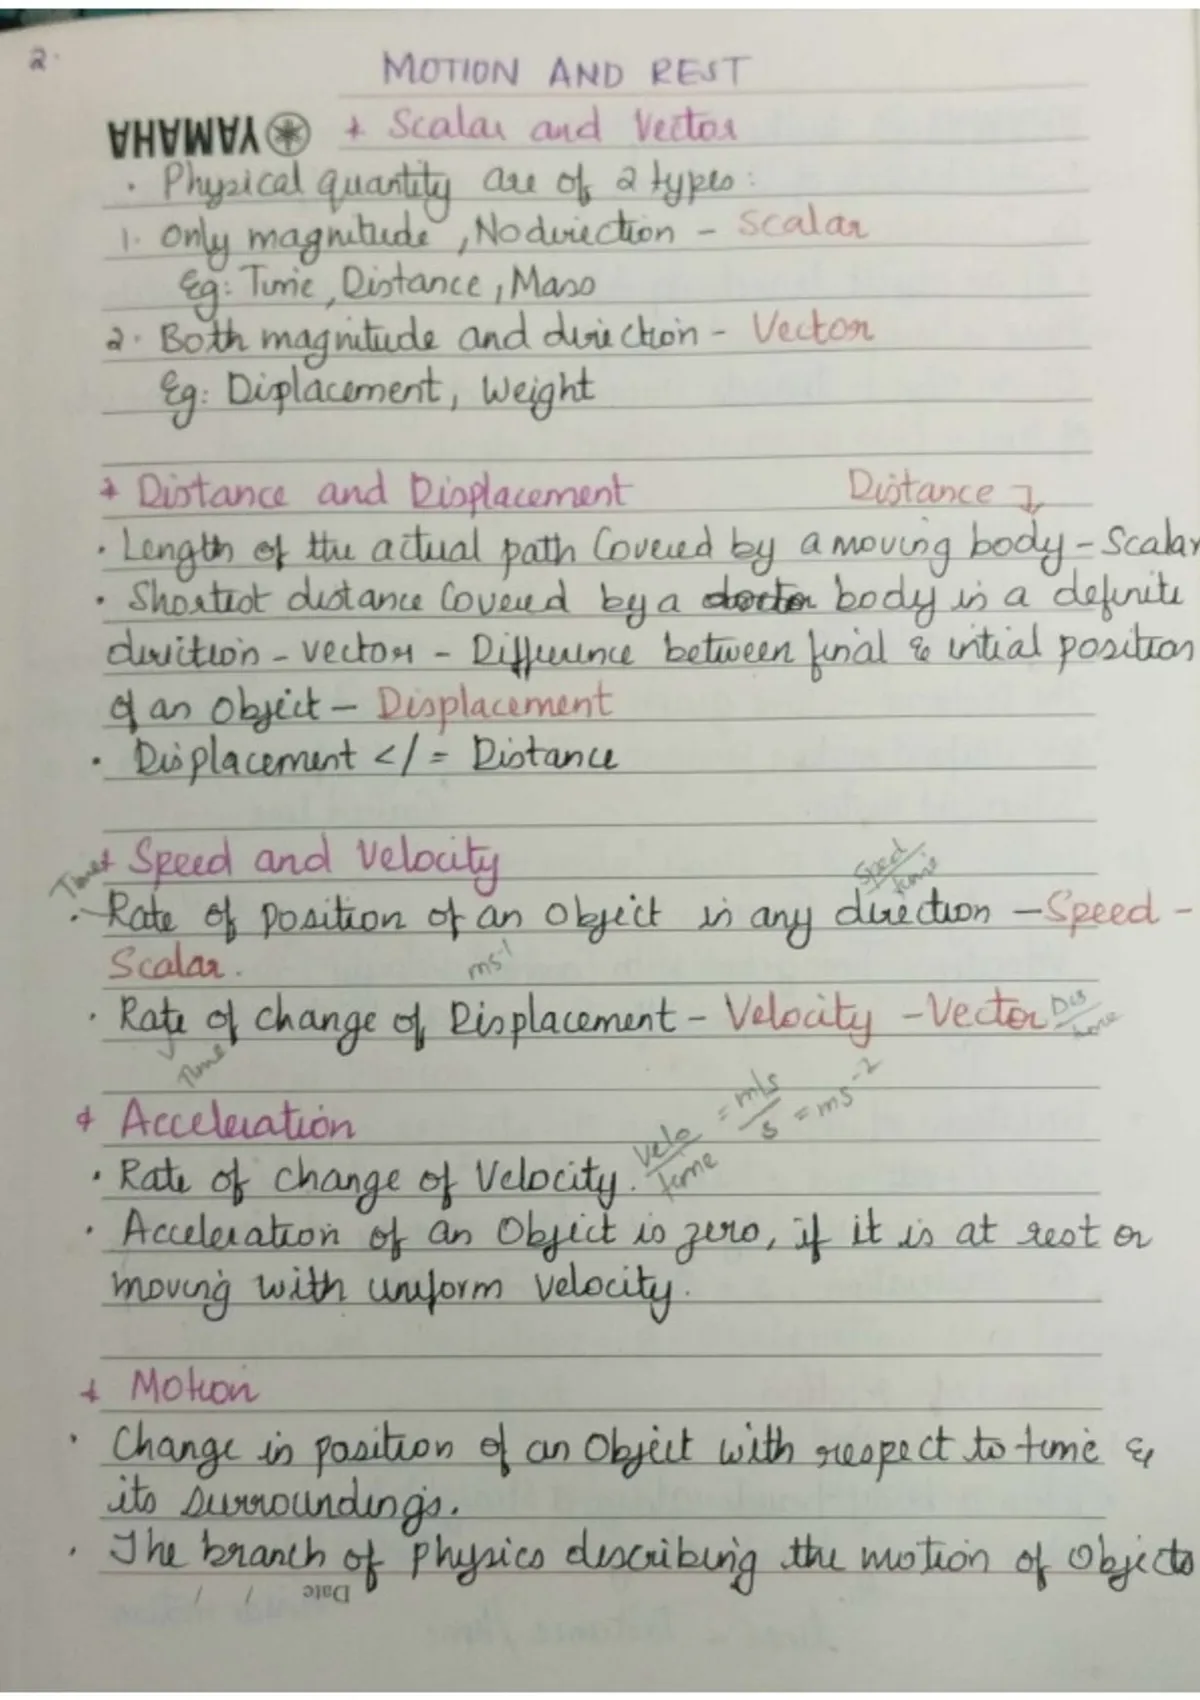 2.
MOTION AND REST
YAMAHA
* Scalar and Vector
• Physical quantity are of 2 types:
1. Only magnitude, No direction - Scalar
Eg: Time, Distance, Mass
2. Both magnitude and direction - Vector
Eg: Displacement, Weight
* Distance and Displacement Distance
• Length of the actual path Covered by a moving body - Scalar
• Shortest distance Covered by a body in a definite
direction - vector - Difference between final & intial position
of an Object - Displacement
• Displacement </= Distance
* Speed and Velocity
Speed/time
Time
• Rate of position of an Object in any direction - Speed -
Scalar.
ms-1
• Rate of change of Displacement - Velocity - Vector Dis/time
Time
* Acceleration
Velo/time = m/s/s = ms-2
• Rate of change of Velocity.
• Acceleration of an Object is zero, if it is at rest or
moving with uniform velocity.
* Motion
• Change in position of an Object with respect to time &
its surroundings.
• The branch of physics describing the motion of Objects
Date / /